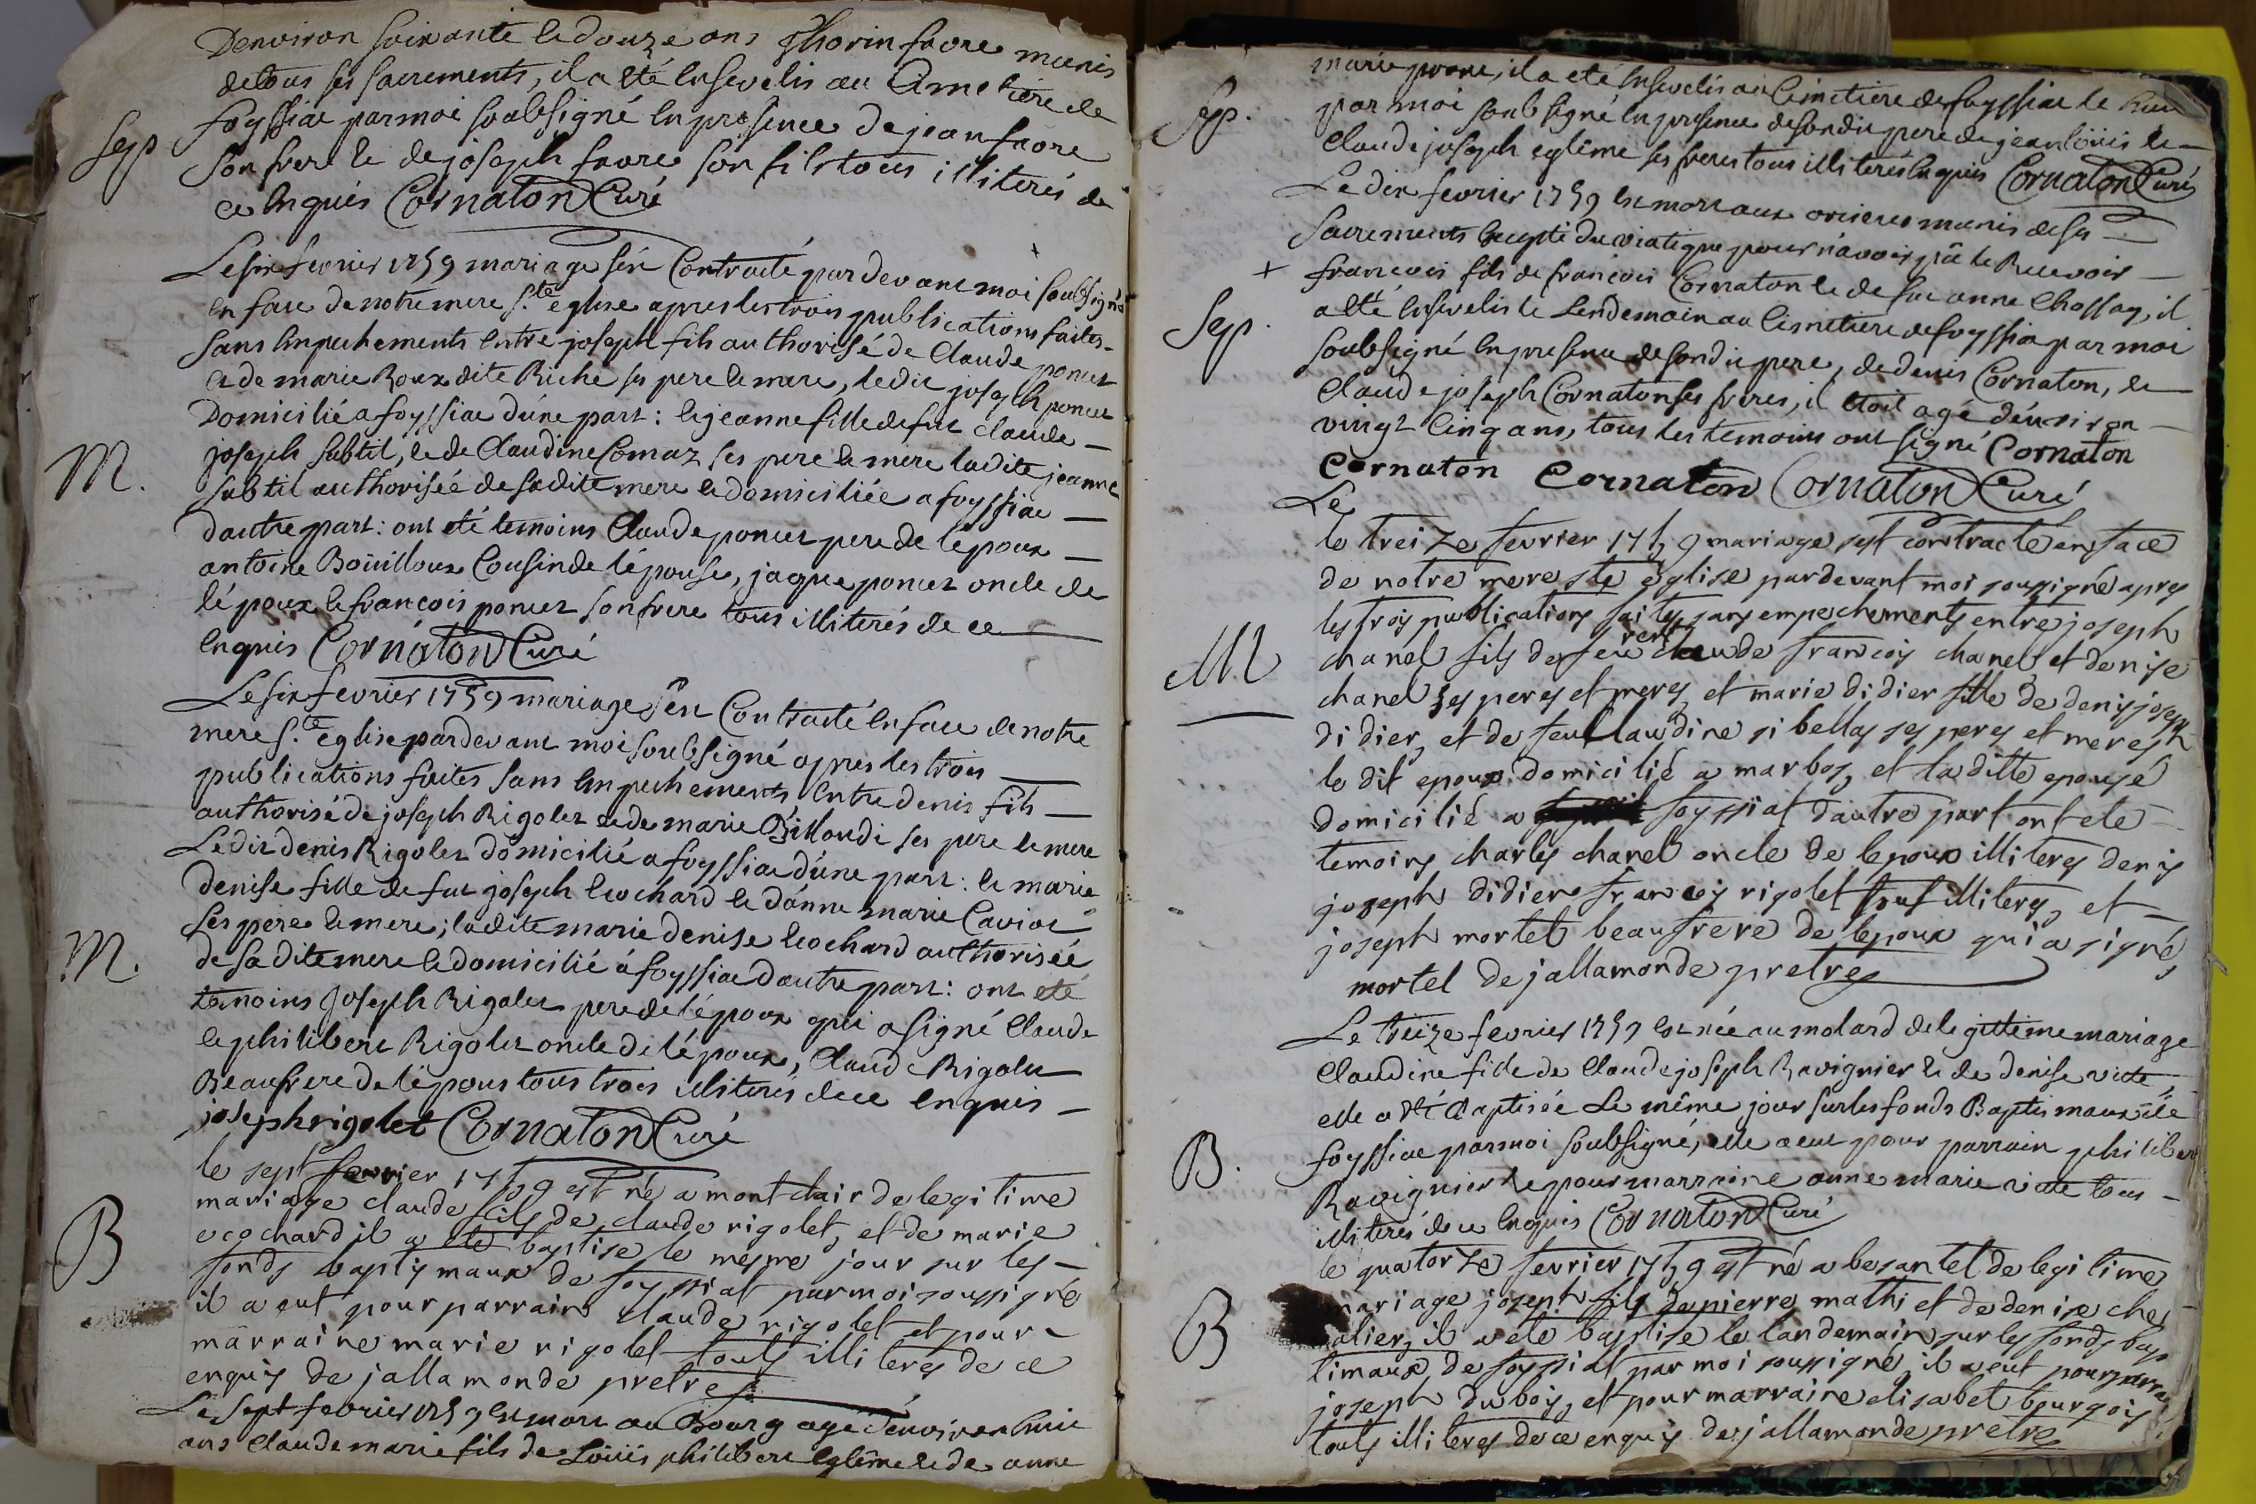 Denviron soixante et douze ans thorin favre munis
de tous ses sacrements, il a été ensevelis au Cimetiere de
Sep
foyssiac par moi soubsigné en presence de jean favre
son frere et de joseph favre son fils tous illiterés de
ce enquis Cornaton Curé
Le six fevrier 1759 mariage s'est Contracté par devant moi soubsigné
en face de notre mere s.te eglise apres les trois publications faites
sans empechements entre joseph fils authorisé de Claude poncet
et de marie Roux dite Riche ses pere et mere, ledit joseph poncet
Domicilié a foyssiac d'une part : et jeanne fille de fut claude
M.
joseph subtil, et de Claudine Comaz ses pere et mere ladite jeanne
subtil authorisée de sadite mere et domiciliée a foyssiac
d'autre part : ont été temoins Claude poncet pere de l'epoux
antoine Boüilloux Cousin de l'épouse, jaque poncet oncle de
lé poux et francois poncet son frere tous illiterés de ce
enquis Cornaton Curé
Le six fevrier 1759 mariage s'est Contracté en face de notre
mere s.te eglise pardevant moi soubsigné apres les trois
publications faites sans empechements entre denis fils
authorisé de joseph Rigolet et de marie Billoudi ses pere et mere
Ledit denis Rigolet domicilié a foyssiac d'une part : et marie
denise fille de fut joseph ecochard et d'anne marie Caviot
ses pere et mere ; ladite marie denise ecochard authorisée
M.
de sadite mere et domicilié a foyssiac d'autre part : ont eté
temoins Joseph Rigolet pere de l'époux qui a signé Claude
et philibert Rigolet oncle de l'époux, Claude Rigolet
Beaufrere de l'epoux tous trois illiterés de ce enquis
joseph rigolet Cornaton Curé
le sept fevrier 1759 est né a montclair de legitime
mariage claude fils de claude rigolet, et de marie
B
ecochard il a eté baptise le mesme jour sur les
fonds baptismaux de foyssiat par moi soussigné
il a eut pour parrain claude rigolet et pour
marraine marie rigolet touts illiteres de ce
enquis de jallamonde pretre
Le sept fevrier 1759 est mort au Bourg agé d'environ huit
ans Claude marie fils de Loüis philibert eglême et de anne
marie prone, il a eté ensevelis au Cimetiere de foyssiac le huit
Sep.
par moi soubsigné en presence de sondit pere de jean loüis et
Claude joseph eglême ses freres tous illiterés enquis Cornaton Curé
Le dix fevrier 1759 est mort aux orcieres munis de ses
sacrements excepté du viatique pour n'avoir pû le Recevoir
+ francois fils de francois Cornaton et de fut anne Chossag, il
Sep.
a eté ensevelis le Lendemain au Cimetiere de foyssia par moi
soubsigné en presence de sondit pere, de denis Cornaton, et
Claude joseph Cornaton ses freres, il étoit agé d'environ
vingt Cinq ans, tous les temoins ont signé Cornaton
Cornaton Cornaton Cornaton Curé
Le
le treize fevrier 1759 mariage sest contracté en face
de notre mere ste eglise pardevant moi soussigné apres
les trois publications faites sans empechements entre joseph
M
chanel fils de feu claude francois chanel et denise
chanel ses peres et meres, et marie didier fille de denis joseph
didier, et de feu Claudine sibellas ses peres et meres
le dit epoux domicilié a marboz, et la ditte epouse
domicilié a foyssiat d'autre part ont ete
temoins charles chanel oncle de lepoux illiteres denis
joseph didier francois rigolet tous illiteres, et
joseph mortel beaufrere de lepoux qui a signé,
mortel de jallamonde pretre
Le treize fevrier 1759 est née au molard de legittime mariage
Claudine fille de Claude joseph Ravignier et de denise viate
elle a été Baptisée Le même jour sur les fonds Baptismaux de
B.
foyssiac par moi soubsigné, elle a eut pour parrain philibert
Ravignier et pour marraine anne marie viate tous
illiterés de ce enquis Cornaton Curé
le quatorze fevrier 1759 est né a besantet de legitime
mariage joseph fils de pierre mathi et de denise che
B
valier, il a ete baptise le landemain sur les fonds bap
timaux de foyssiat par moi soussigné, il a eut pour parrai
joseph dubois, et pour marraine elisabet bourgois
touts illiteres de ce enquis de jallamonde pretre